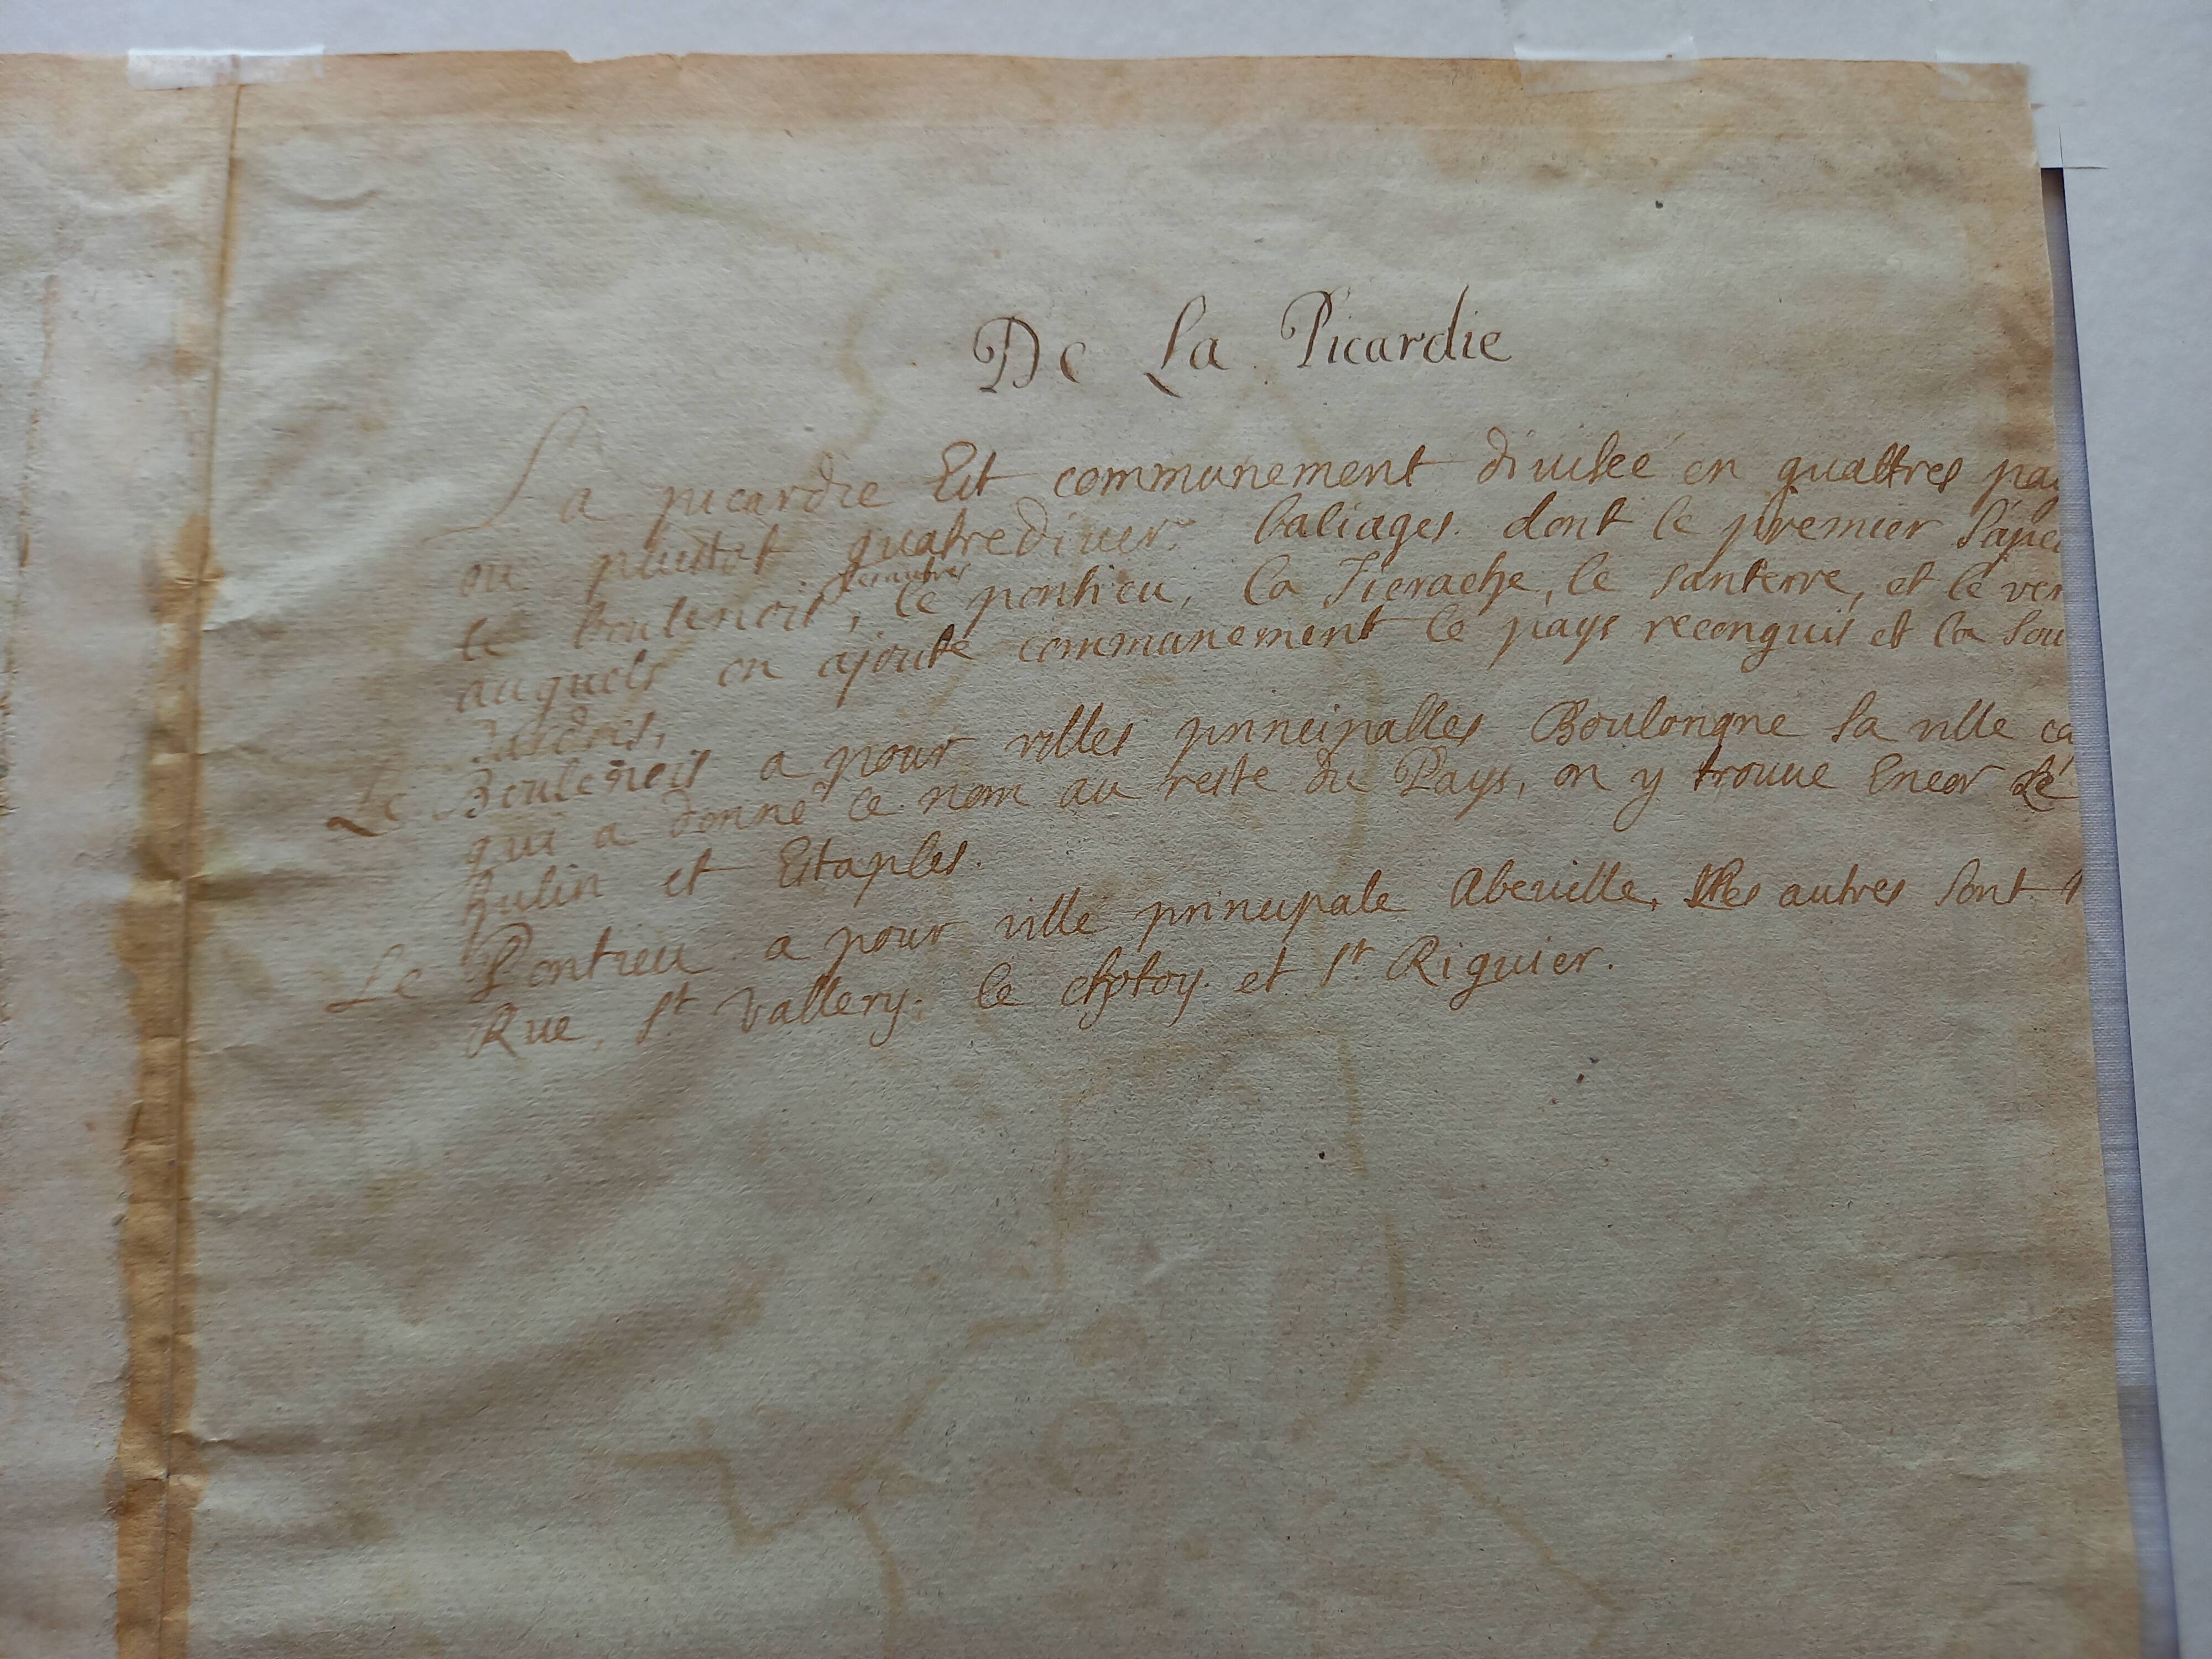 De La Picardie
La picardie Est communement diuiseé en quattres pa
ou plustot quatre diuers baliages. dont le premier s'apel
le boulenois, les autres le pontieu, la Tierache, le santerre, et le ver
auquels on ajoute communement le pays reconquis et la sou
Le Boulenois a pour villes principalles Boulongne sa ville ca
qui a donné ce nom au reste du Pays, on y trouue Encor
hulin et Estaples.
Le Pontieu a pour ville principale Abeuille, les autres sont
Rue, St Vallery, le chptoy. et St Riquier.